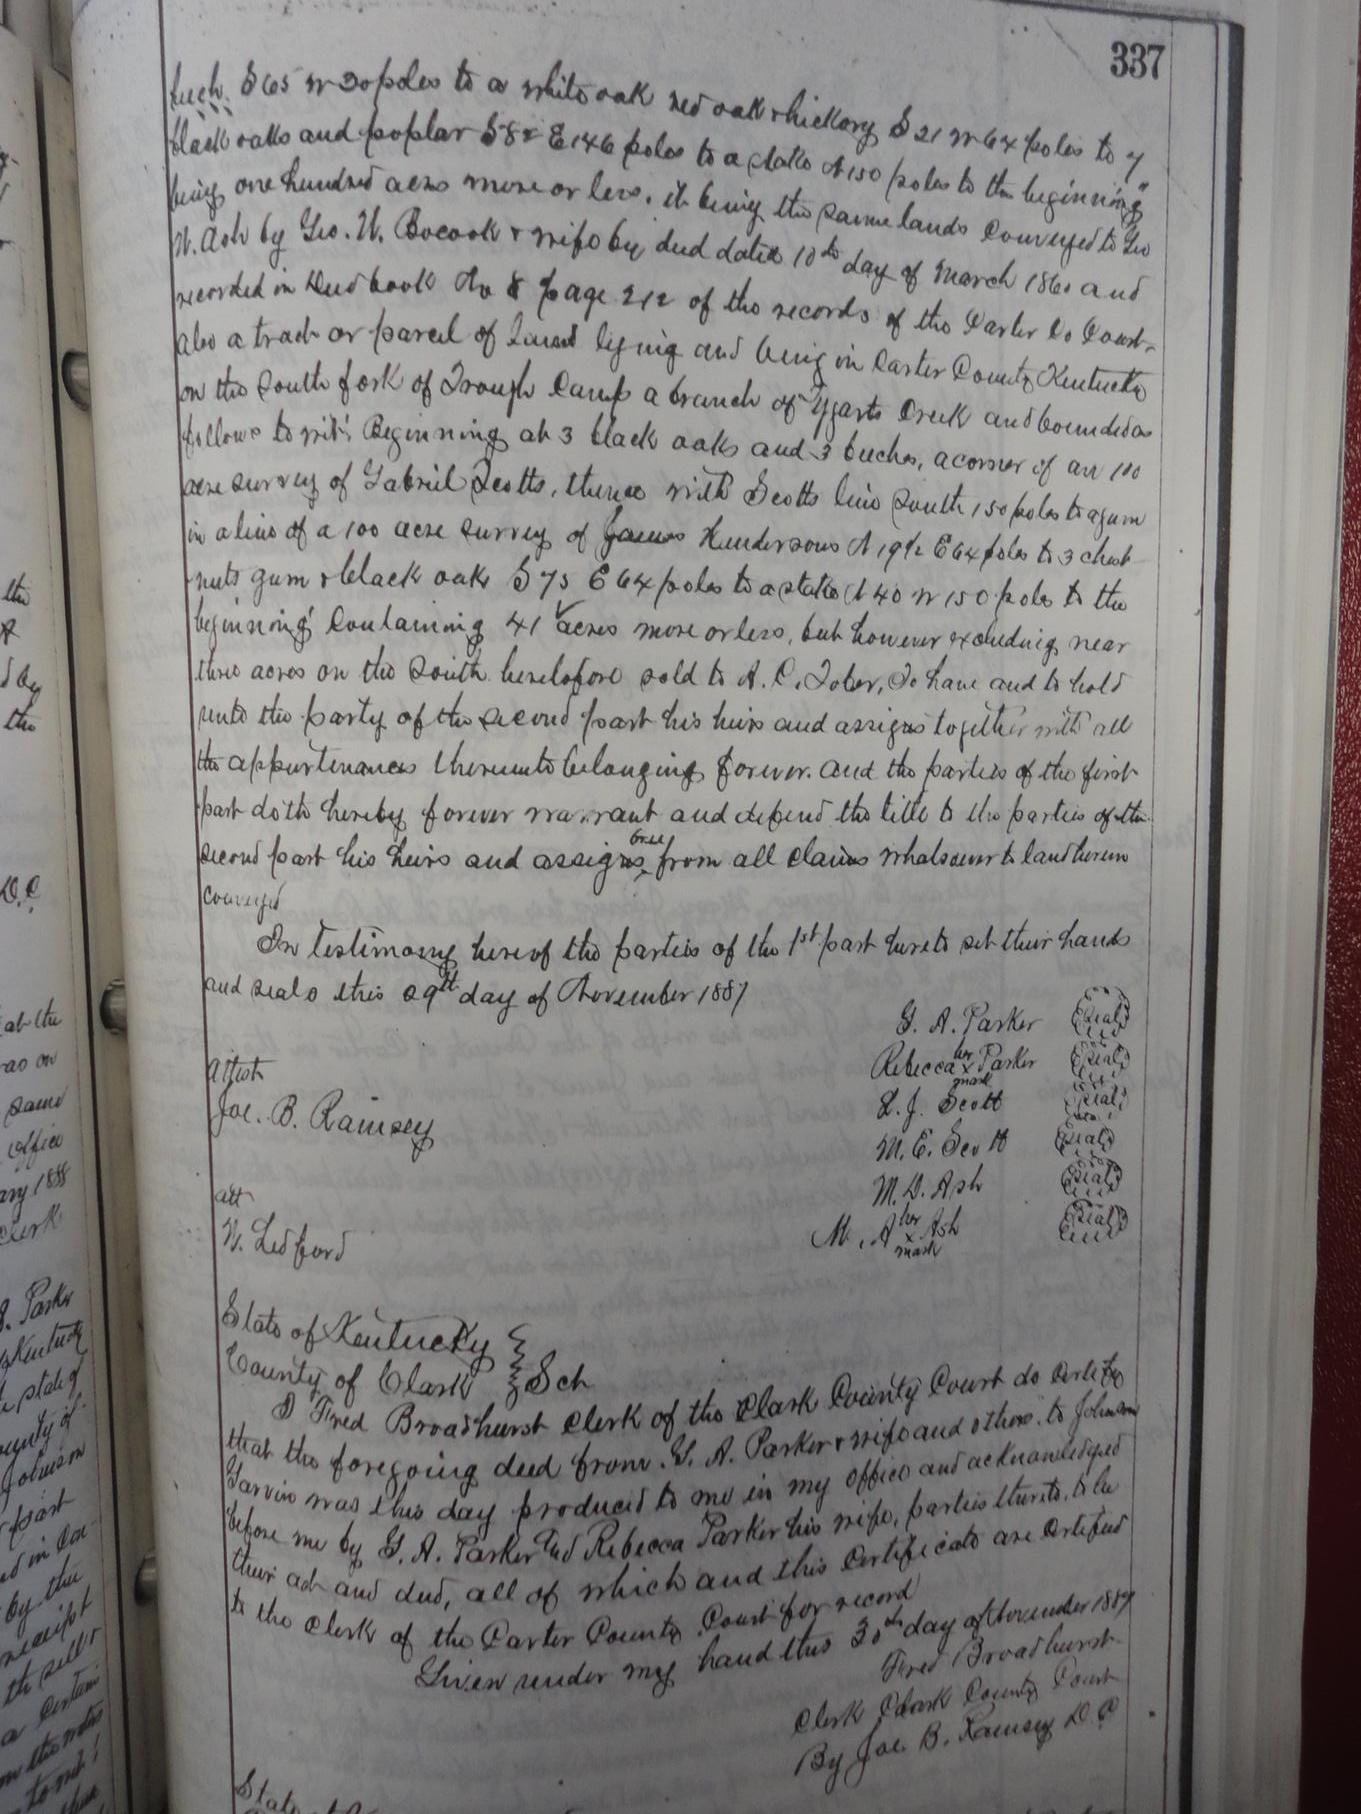 337
beech. S 65 W 30 poles to a white oak red oak & hickory S 21 W 64 poles to 4
black oaks and poplar S 82 E 146 poles to a stake N 150 poles to the beginning"
being one hundred acres more or less. it being the same lands conveyed to Geo
W. Ash by Geo. W. Bocook & wife by deed dated 10th day of March 1860 and
recorded in Deed book No 8 page 212 of the records of the Carter Co Court.
also a tract or parcel of land lying and being in Carter County Kentucky
on the South fork of Trough Camp a branch of Tygarts Creek and bounded as
follows to wit: Beginning at 3 black oaks and 3 beeches, a corner of an 100
acre survey of Gabriel Scotts, thence with Scotts line South 150 poles to a gum
in a line of a 100 acre survey of James Hendersons N 19½ E 64 poles to 3 chest
nuts gum & black oak S 75 E 64 poles to a stake N 40 W 150 poles to the
beginning Containing 41 acres more or less, but however excluding near
three acres on the South heretofore sold to A. C. To have and to hold
unto the party of the second part his heirs and assigns together with all
the appurtenances thereunto belonging forever. and the parties of the first
part doth hereby forever warrant and defend the title to the parties of the
second part his heirs and assigns free from all claims whatsoever to land herein
conveyed
In testimony hereof the parties of the 1st part hereto set their hands
and seals this 29th day of November 1887
G. A. Parker Seal
Attest Rebecca her x mark Parker Seal
Joe. B. Ramsey L. J. Scott Seal
M. E. Scott Seal
att M. D. Ash Seal
W. Ledford M. A her x mark Ash Seal
State of Kentucky
County of Clark } Sct
I Fred Broadhurst Clerk of the Clark County Court do certify
that the foregoing deed from G. A. Parker & wife and others to Johnson
Garvin was this day produced to me in my office and acknowledged
before me by G. A. Parker and Rebecca Parker his wife, parties thereto, to be
their act and deed, all of which and this certificate are certified
to the Clerk of the Carter County Court for record
Given under my hand this 30th day of November 1887
Fred Broadhurst
Clerk Clark County Court
By Joe B. Ramsey D.C
State